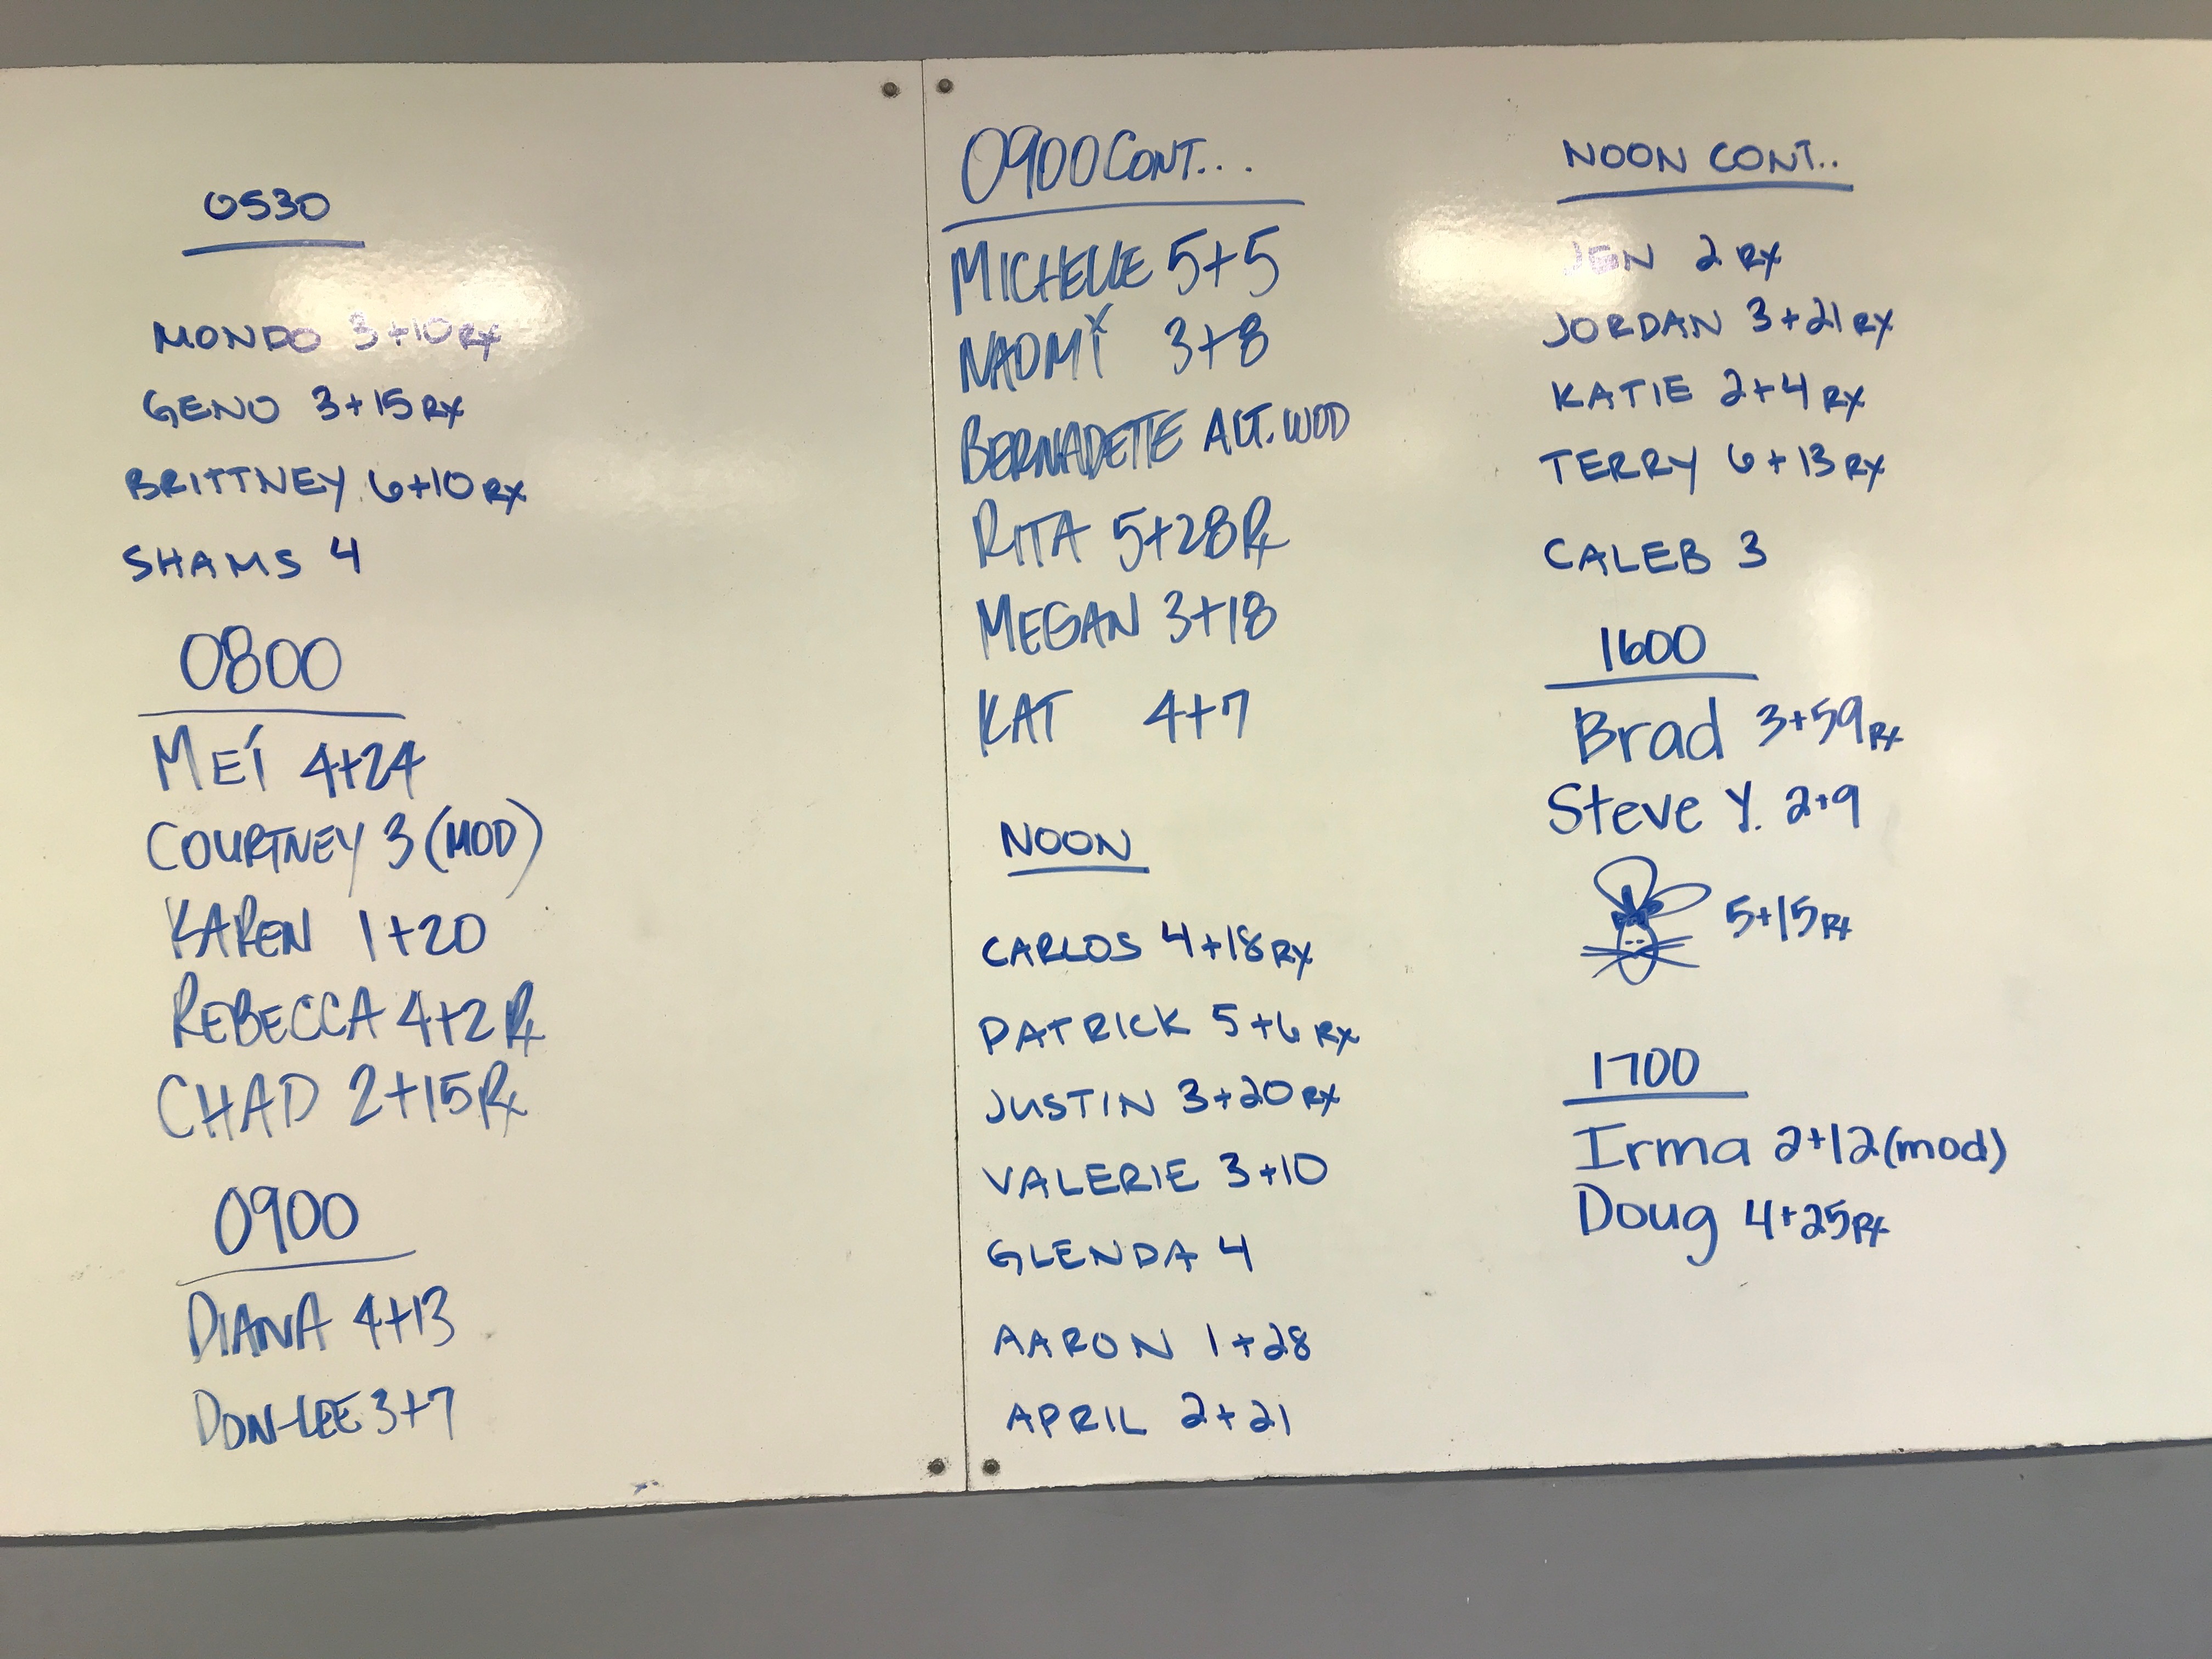 0530
MONDO 3+10 RX
GENO 3+15 RX
BRITTNEY 6+10 RX
SHAMS 4
0800
MEÍ 4+24
COURTNEY 3 (MOD)
KAREN 1+20
REBECCA 4+2 RX
CHAD 2+15 RX
0900
DIANA 4+13
DON-LEE 3+7
0900 CONT...
MICHELLE 5+5
NAOMI 3+8
BERNADETTE ALT. WOD
RITA 5+28 RX
MEGAN 3+18
KAT 4+7
NOON
CARLOS 4+18 RX
PATRICK 5+6 RX
JUSTIN 3+20 RX
VALERIE 3+10
GLENDA 4
AARON 1+28
APRIL 2+21
NOON CONT..
JEN 2 RX
JORDAN 3+21 RX
KATIE 2+4 RX
TERRY 6+13 RX
CALEB 3
1600
Brad 3+59 RX
Steve Y. 2+9
5+15 RX
1700
Irma 2+12 (mod)
Doug 4+25 RX